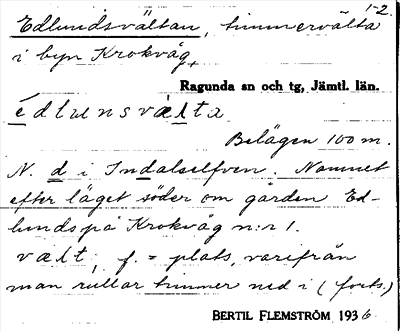 1-2.
Edlundsvältan, timmervälta
i byn Krokvåg,
Ragunda sn och tg, Jämtl. län.
édlunsvälta
Belägen 100 m.
N. d i Indalselfven. Namnet
efter läget söder om gården Ed-
lunds på Krokvåg n:r 1.
vält, f. = plats, varifrån
man rullar timmer ned i (forts.)
BERTIL FLEMSTRÖM 1936